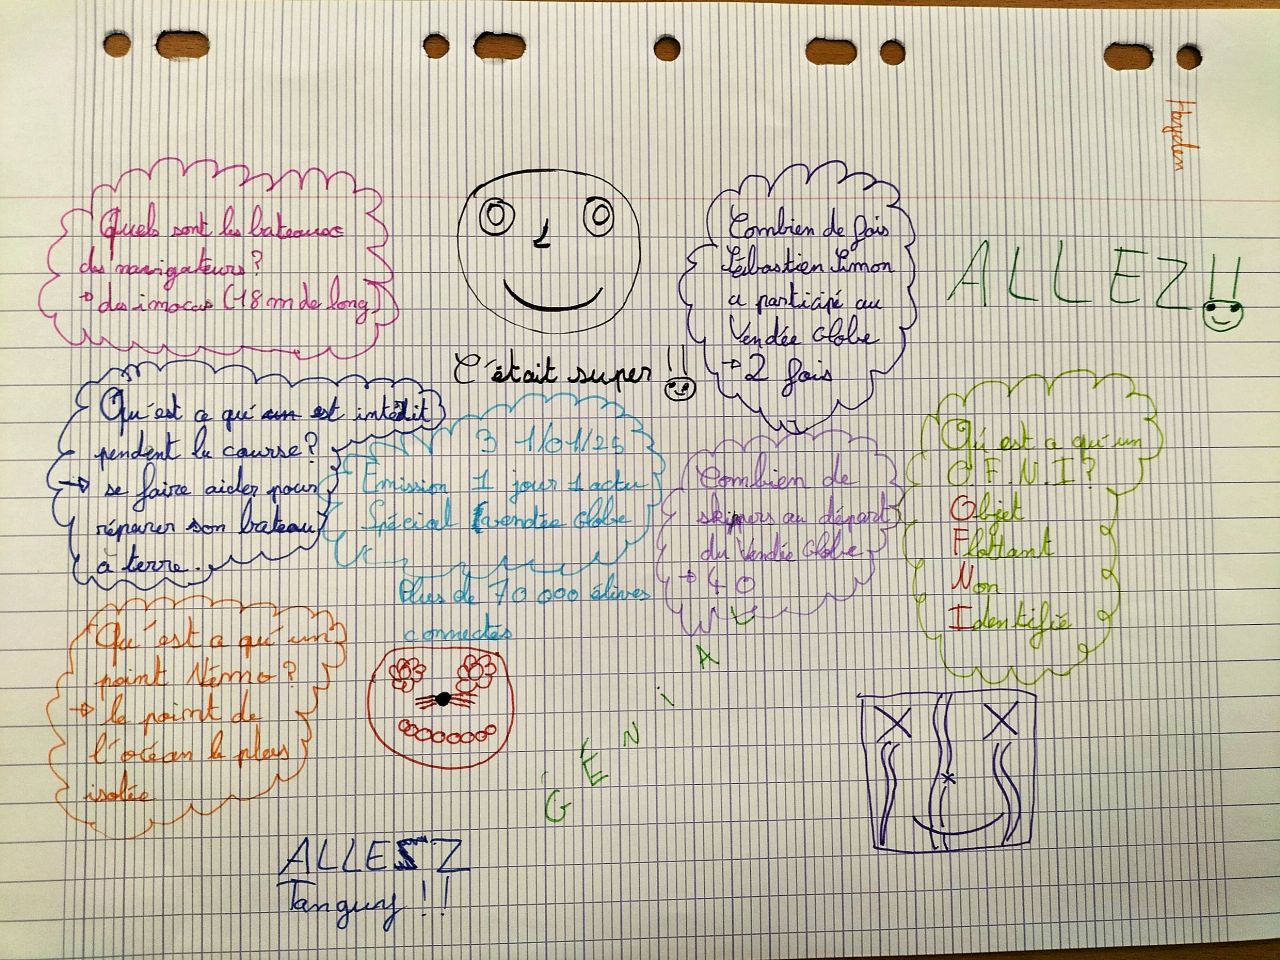 Hayden
Quels sont les bateaux
des navigateurs ?
→ des imocas (18 m de long)
C'était super !!
Combien de fois
Sébastien Simon
a participé au
Vendée Globe
→ 2 fois
ALLEZ !!
Qu'est ce qu'un est intédit
pendent la course ?
→ se faire aider pour
réparer son bateau
à terre.
31/01/25
Emission 1 jour 1 actu
Spécial Vendée Globe
Plus de 70 000 élèves
connectés
Combien de
skippers au départ
du Vendée Globe
→ 40
Qu'est a qu'un
O.F.N.I ?
Objet
Flottant
Non
Identifié
Qu'est a qu'un
point Némo ?
→ le point de
l'océan le plus
isolée
GÉNiAL
ALLEZ
Tanguy !!